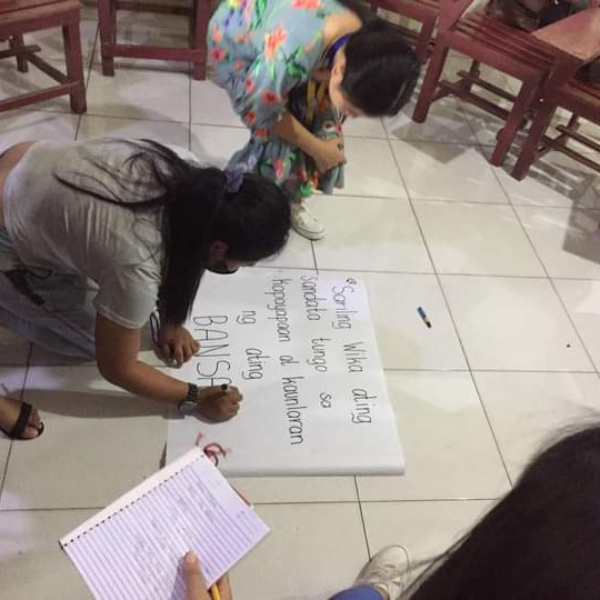 "Sariling Wika ating
sandata tungo sa
kapayapaan at kaunlaran
ng ating
BANSA